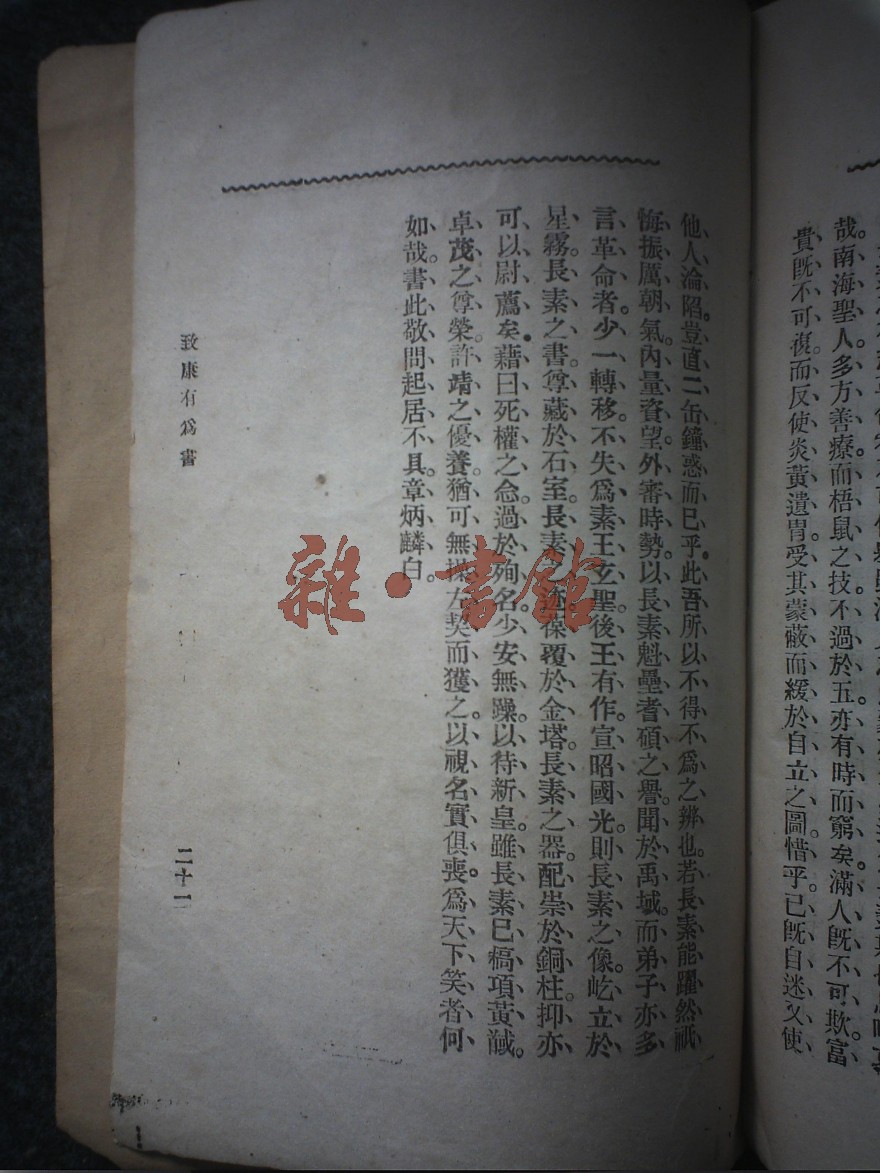 哉。南海聖人多方善療而梧鼠之技不過於五亦有時而窮矣滿人既不可欺富
貴既不可復而反使炎黃遺冑受其蒙蔽而緩於自立之圖惜乎已既自迷又使
他人淪陷豈直二缶鐘惑而已乎。此吾所以不得不爲之辨也。若長素能躍然祇
悔振厲朝氣內量資望外審時勢。以長素魁壘耆碩之譽聞於禹域。而弟子亦多
言革命者。少一轉移。不失爲素王玄聖。後王有作。宣昭國光。則長素之像。屹立於
星霧。長素之書。尊藏於石室。長素之迹。葆覆於金塔。長素之器。配崇於銅柱。抑亦
可以尉薦矣。藉曰死權之念。過於殉名。少安無躁。以待新皇。雖長素已槁項黃馘。
卓茂之尊榮。許靖之優養。猶可無操左契而獲之。以視名實俱喪。爲天下笑者。何
如哉。書此敬問起居不具。章炳麟白。
致康有爲書
二十一
雜·書館